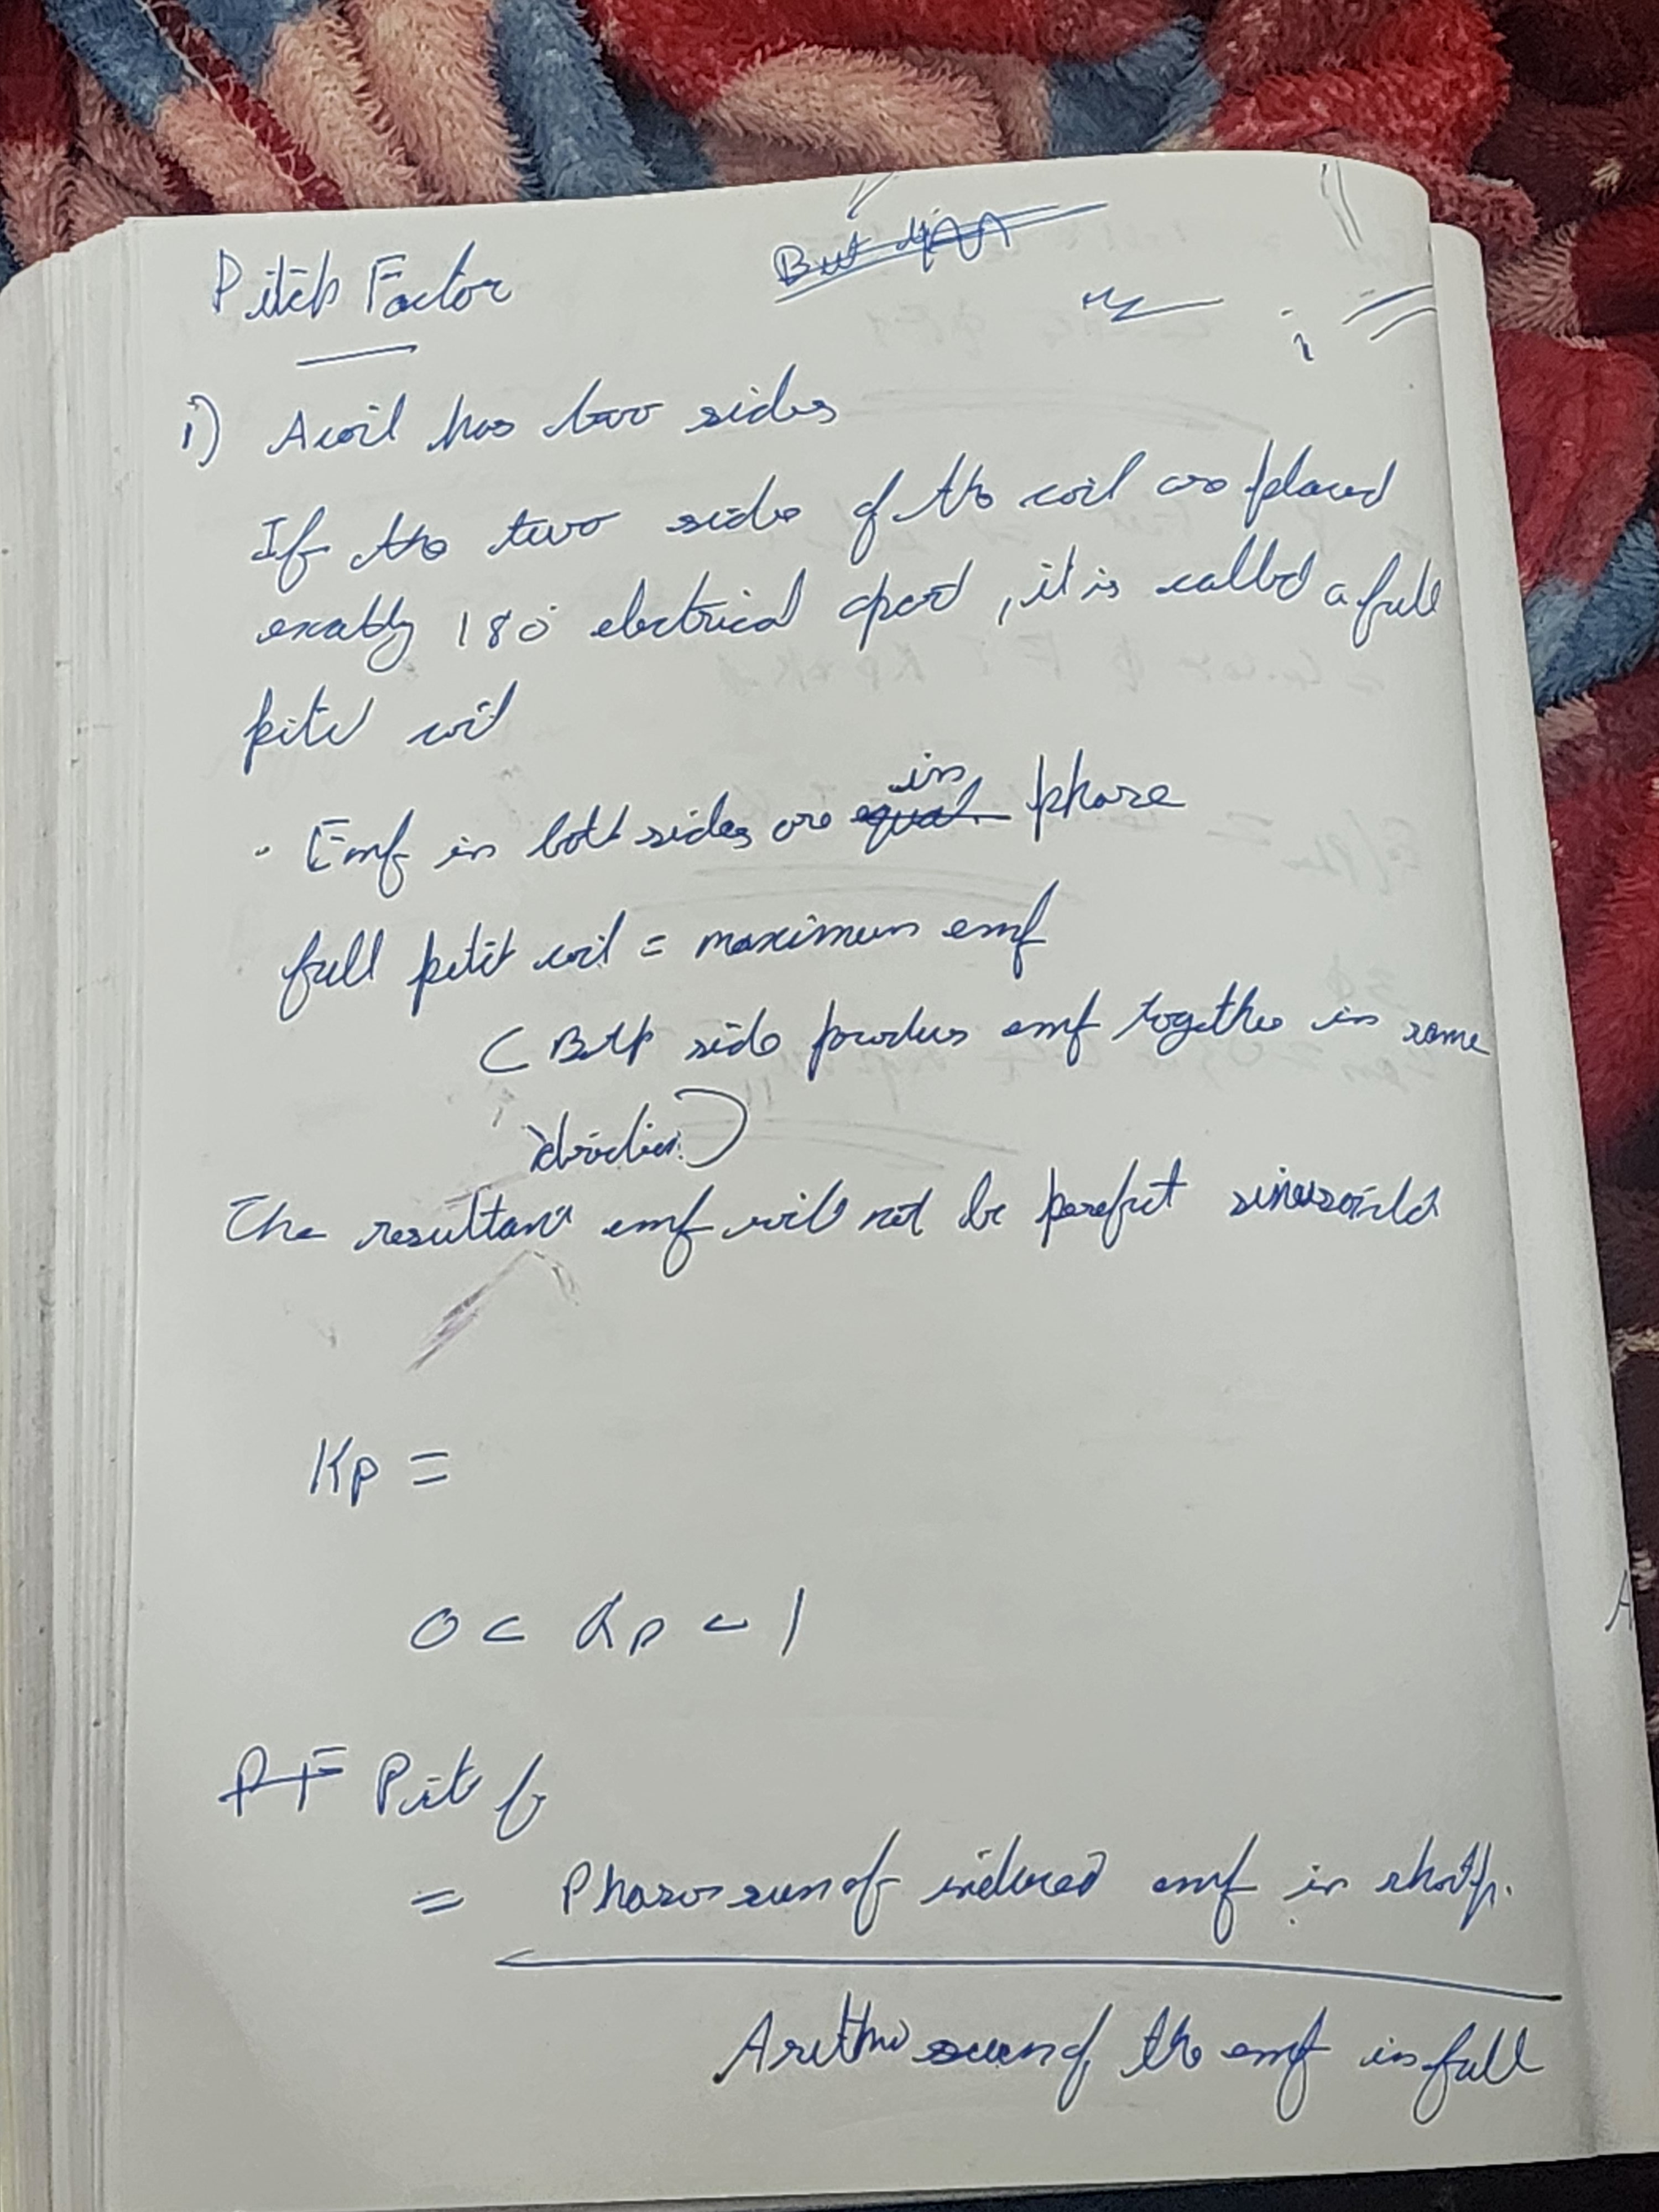 Pitch Factor
i) A coil has two sides
If the two side of the coil are placed
exactly 180° electrical apart, it is called a full
pitch coil
· Emf in both sides are in phase
full pitch coil = maximum emf
( Both side produces emf together in same
direction)
The resultant emf will not be perfect sinusoidal
Kp =
0 < Kp < 1
PF Pit f
= Phasor sum of induced emf in shortp.
Arithm sum of the emf in full